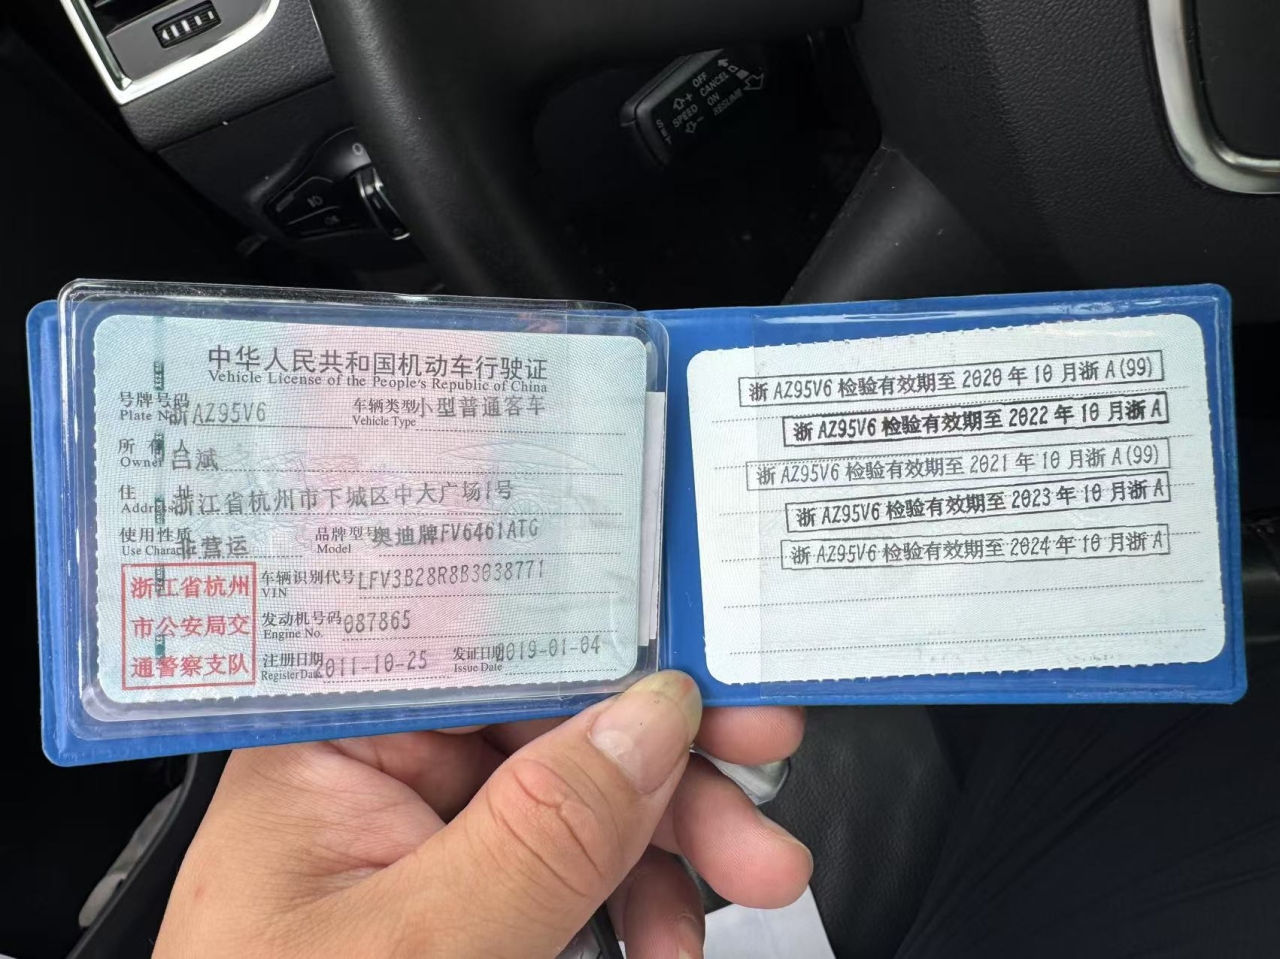 OFF
CANCEL
SPEED ON
RESUME
SET
中华人民共和国机动车行驶证
Vehicle License of the People's Republic of China
号牌号码 浙AZ95V6 车辆类型 小型普通客车
Plate No. Vehicle Type
所有人 吕斌
Owner
住址 浙江省杭州市下城区中大广场1号
Address
使用性质 非营运 品牌型号 奥迪牌FV6461ATG
Use Character Model
浙江省杭州
市公安局交
通警察支队
车辆识别代号 LFV3B28R8B3038771
VIN
发动机号码 087865
Engine No.
注册日期 2011-10-25 发证日期 2019-01-04
Register Date Issue Date
浙 AZ95V6 检验有效期至 2020 年 10 月浙 A(99)
浙 AZ95V6 检验有效期至 2022 年 10 月浙 A
浙 AZ95V6 检验有效期至 2021 年 10 月浙 A(99)
浙 AZ95V6 检验有效期至 2023 年 10 月浙 A
浙 AZ95V6 检验有效期至 2024 年 10 月浙 A